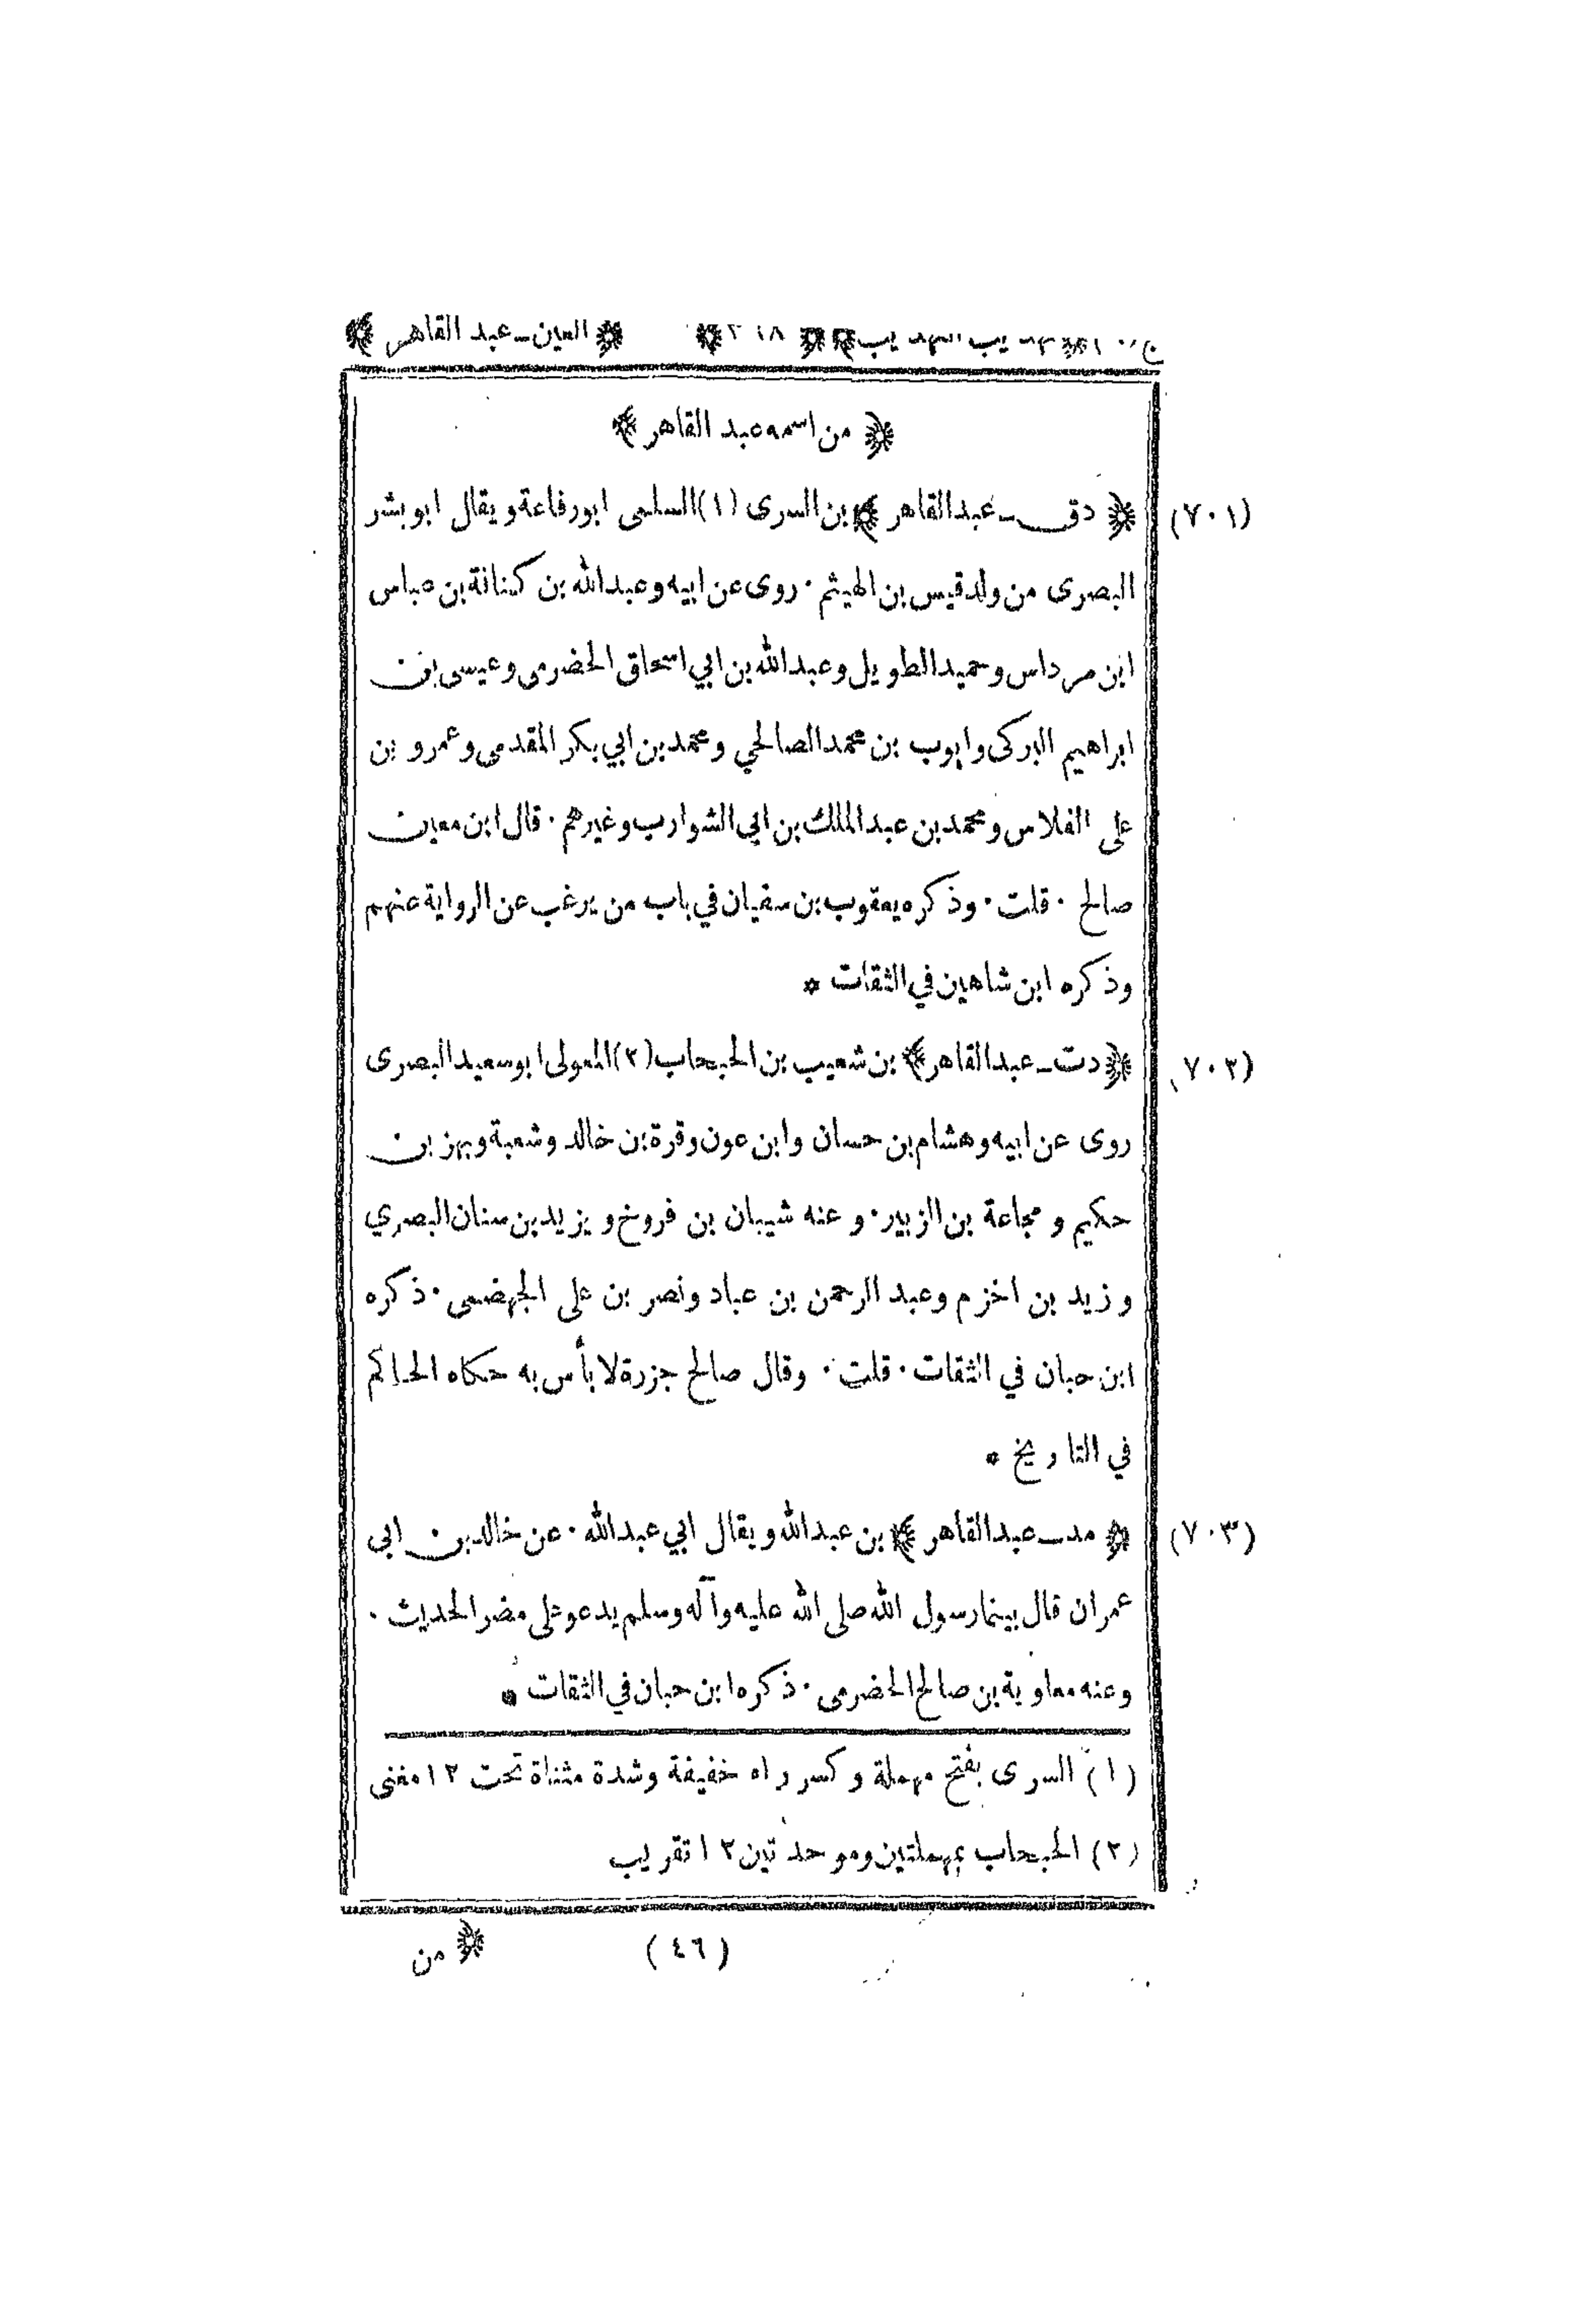 العين ـ عبد القاهر
من اسمه عبد القاهر
(٧٠١) دق ـ عبد القاهر بن السرى (١) السلمى ابو رفاعة ويقال ابو بشر
البصرى من ولد قيس بن الهيثم · روى عن ابيه وعبد الله بن كنانة بن عباس
ابن مرداس وحميد الطويل وعبد الله بن ابي اسحاق الحضرمى وعيسى بن
ابراهيم البركى وايوب بن محمد الصالحي ومحمد بن ابي بكر المقدمى وعمرو بن
على الفلاس ومحمد بن عبد الملك بن ابي الشوارب وغيرهم · قال ابن معين
صالح · قلت · وذكره يعقوب بن سفيان في باب من يرغب عن الرواية عنهم
وذكره ابن شاهين في الثقات *
(٧٠٢) دت ـ عبد القاهر بن شعيب بن الحبحاب (٢) المعولى ابو سعيد البصرى
روى عن ابيه وهشام بن حسان وابن عون وقرة بن خالد وشعبة وبهز بن
حكيم و مجاعة بن الزبير · و عنه شيبان بن فروخ و يزيد بن سنان البصري
و زيد بن اخزم وعبد الرحمن بن عباد ونصر بن على الجهضمى · ذكره
ابن حبان في الثقات · قلت · وقال صالح جزرة لا بأس به حكاه الحاكم
في التاريخ *
(٧٠٣) مد ـ عبد القاهر بن عبد الله ويقال ابي عبد الله · عن خالد بن ابى
عمران قال بينما رسول الله صلى الله عليه وآله وسلم يدعو على مضر الحديث ·
وعنه معاوية بن صالح الحضرمى · ذكره ابن حبان في الثقات *
(١) السرى بفتح مهملة و كسر راه خفيفة وشدة مثناة تحت ١٢ مغنى
(٢) الحبحاب بمهملتين وموحدتين ١٢ تقريب
(٤٦) من